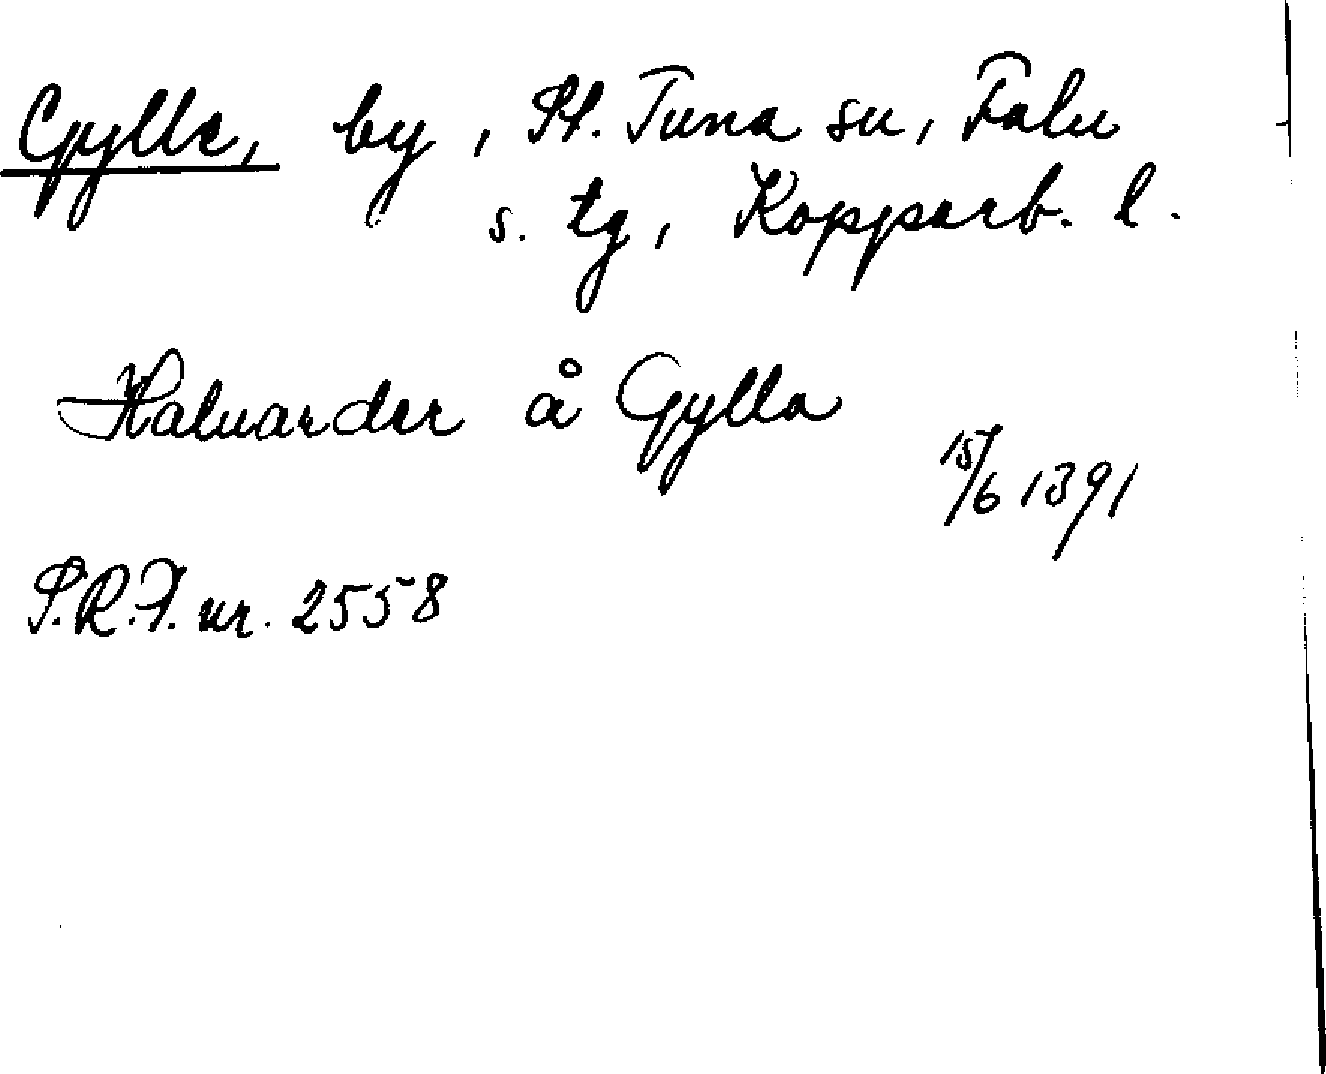 Gylle, by, St. Tuna sn, Falu
s. tg, Kopparb. l.
Haluarder å Gylla
15/6 1391
S.R.P. nr. 2558